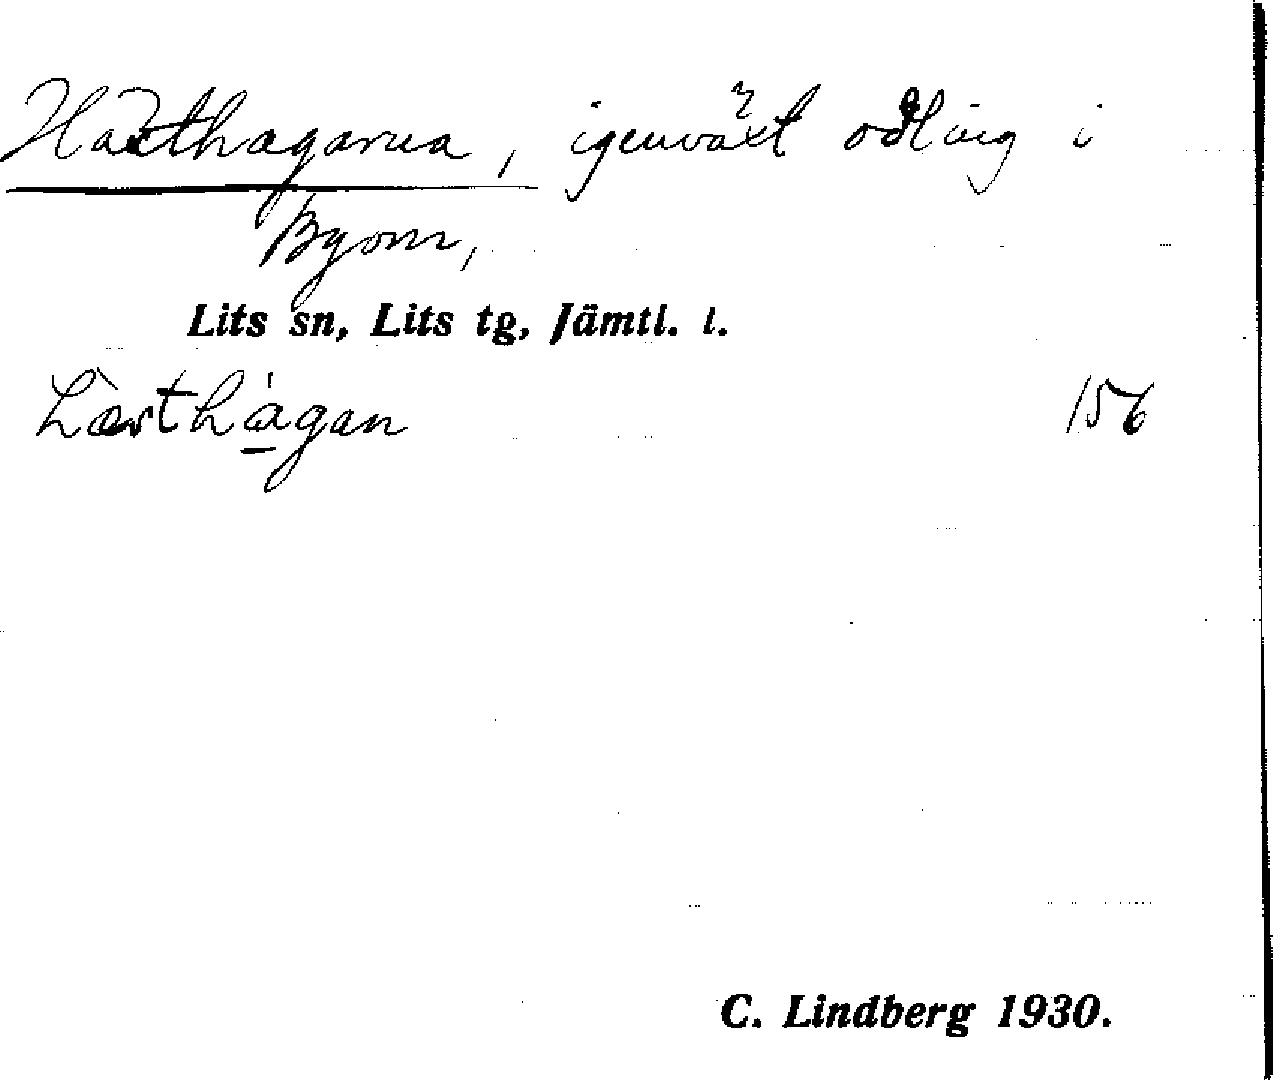 Hårthagarna, igenväxt odling i
Byom,
Lits sn, Lits tg, Jämtl. l.
156
C. Lindberg 1930.